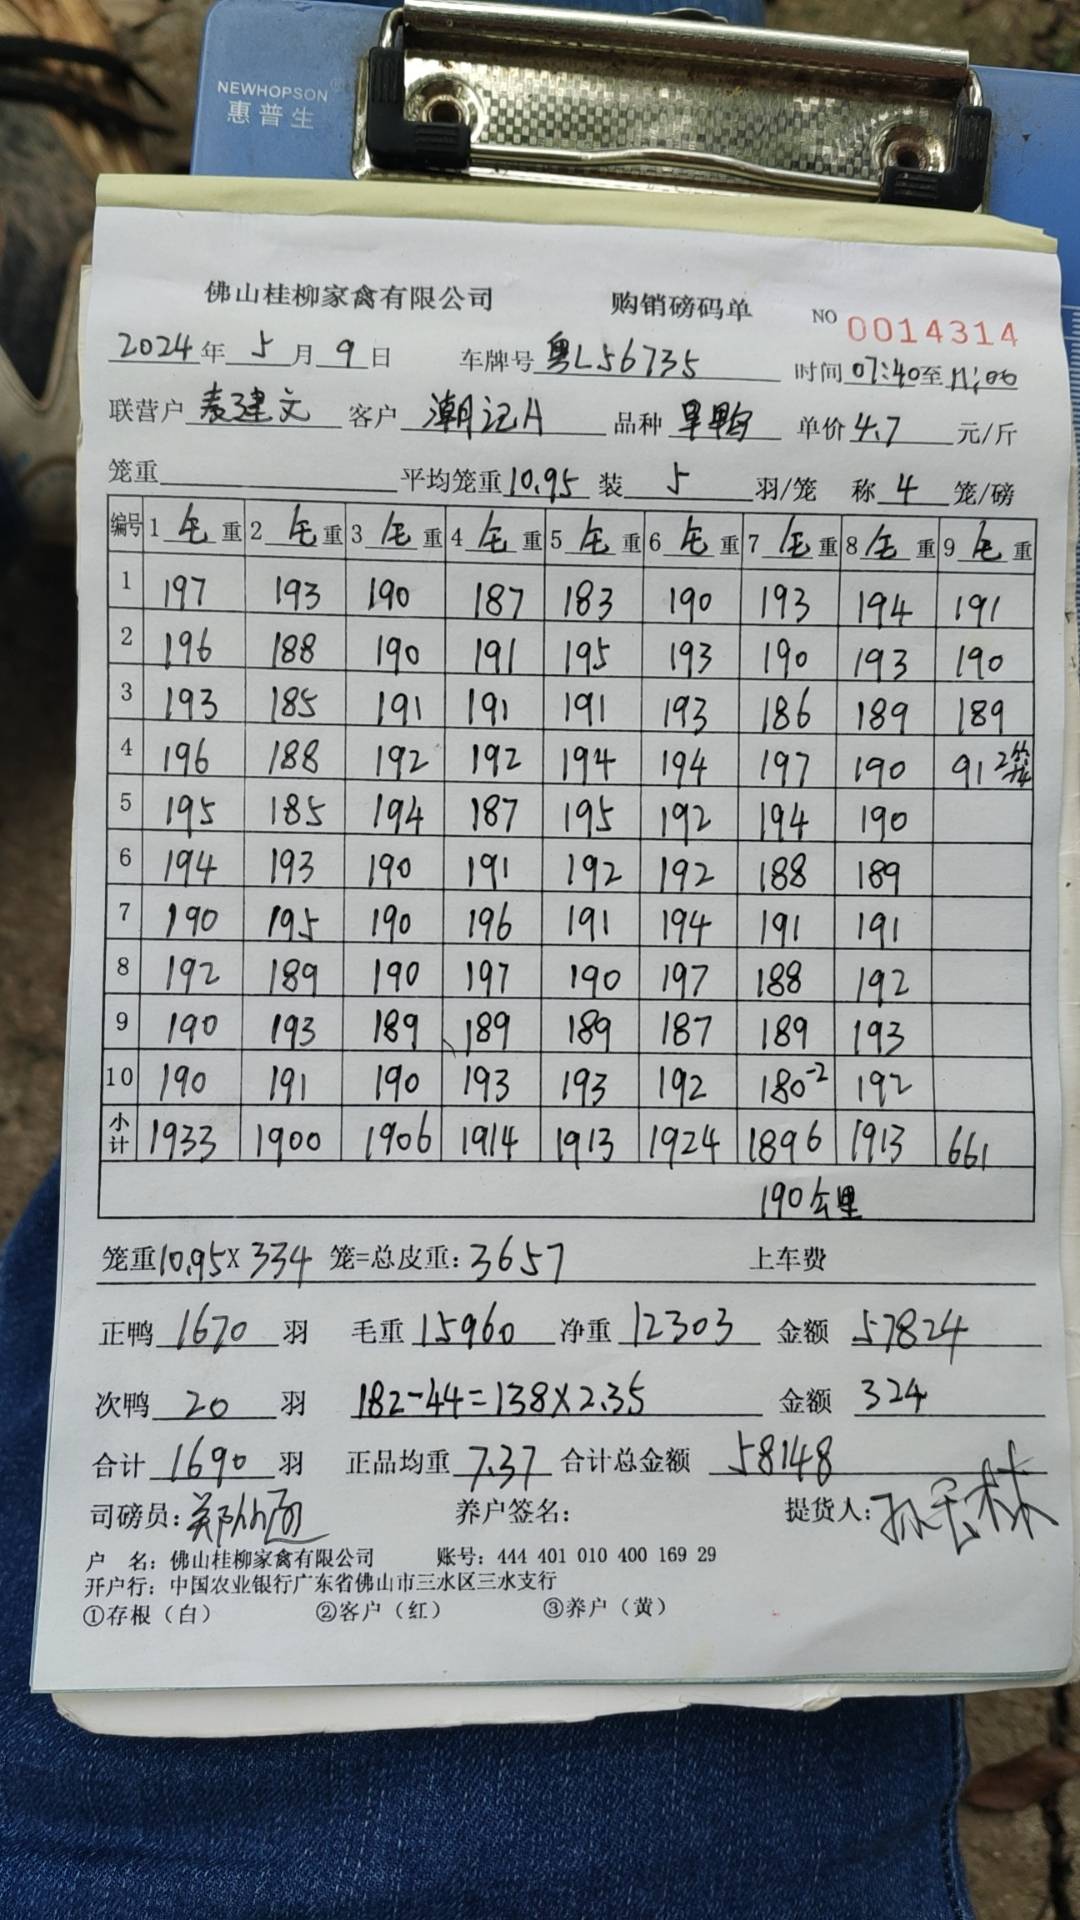 NEWHOPSON
惠普生
佛山桂柳家禽有限公司 购销磅码单 NO 0014314
2024年 5月 9日 车牌号 粤L56735 时间 07:40至 11:00
联营户 麦建文 客户 潮记A 品种 旱鸭 单价 4.7 元/斤
笼重 平均笼重 10.95 装 5 羽/笼 称 4 笼/磅
编号 1 毛 重 2 毛 重 3 毛 重 4 毛 重 5 毛 重 6 毛 重 7 毛 重 8 毛 重 9 毛 重
1 197 193 190 187 183 190 193 194 191
2 196 188 190 191 195 193 190 193 190
3 193 185 191 191 191 193 186 189 189
4 196 188 192 192 194 194 197 190 91 2笼
5 195 185 194 187 195 192 194 190
6 194 193 190 191 192 192 188 189
7 190 195 190 196 191 194 191 191
8 192 189 190 197 190 197 188 192
9 190 193 189 189 189 187 189 193
10 190 191 190 193 193 192 180-2 192
小计 1933 1900 1906 1914 1913 1924 1896 1913 661
190公里
笼重 10.95 X 334 笼=总皮重: 3657 上车费
正鸭 1670 羽 毛重 15960 净重 12303 金额 57824
次鸭 20 羽 182-44=138×2.35 金额 324
合计 1690 羽 正品均重 7.37 合计总金额 58148
司磅员: 养户签名: 提货人:
户 名: 佛山桂柳家禽有限公司 账号: 444 401 010 400 169 29
开户行: 中国农业银行广东省佛山市三水区三水支行
①存根（白） ②客户（红） ③养户（黄）